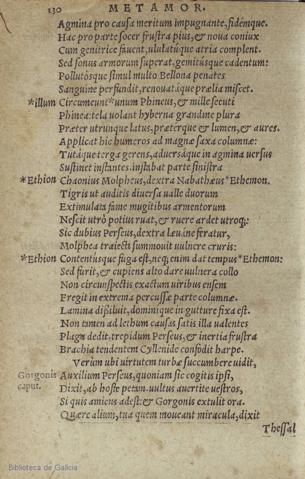 130 METAMOR.
Agmina pro causa meritum impugnante, fidémque.
Hac pro parte socer frustra pius, & noua coniux
Cum genitrice fauent, ululatúque atria complent.
Sed sonus armorum superat, gemitúsque cadentum:
Pollutósque simul multo Bellona penates
Sanguine perfundit, renouatáque prælia miscet.
*illum Circumeunt*unum Phineus, & mille secuti
Phinea: tela uolant hyberna grandine plura
Præter utrunque latus, præterque & lumen, & aures.
Applicat hic humeros ad magnæ saxa columnæ:
Tutáque terga gerens, aduersáque in agmina uersus
Sustinet instantes. instabat parte sinistra
*Ethion Chaonius Molpheus, dextra Nabathæus*Ethemon.
Tigris ut auditis diuersa ualle duorum
Extimulata fame mugitibus armentorum
Nescit utrò potius ruat, & ruere ardet utroq;:
Sic dubius Perseus, dextra læuáne feratur,
Molphea traiecti summouit uulnere cruris:
*Ethion Contentúsque fuga est. neq; enim dat tempus*Ethemon:
Sed furit, & cupiens alto dare uulnera collo
Non circunspectis exactum uiribus ensem
Fregit in extrema percussæ parte columnæ.
Lamina dissiluit, dominique in gutture fixa est.
Non tamen ad lethum causas satis illa ualentes
Plaga dedit. trepidum Perseus, & inertia frustra
Brachia tendentem Cyllenide confodit harpe.
Verùm ubi uirtutem turbæ succumbere uidit,
Gorgonis Auxilium Perseus, quoniam sic cogitis ipsi,
caput. Dixit, ab hoste petam. uultus auertite uestros,
Si quis amicus adest: & Gorgonis extulit ora.
Quære alium, tua quem moueant miracula, dixit
Thessal
Biblioteca de Galicia